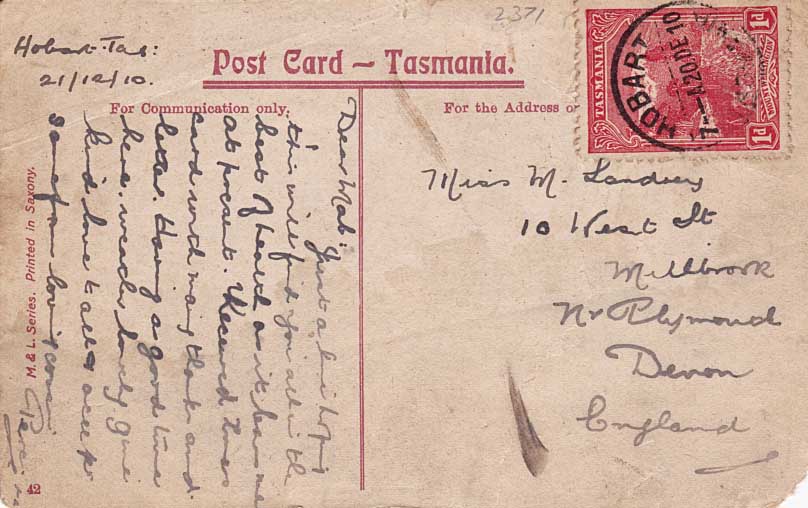 2371
Hobart. Tas:
21/12/10.
Post Card – Tasmania.
For Communication only.
For the Address
TASMANIA
1d 1d
HOBART
7- A 20 DE 10
Dear Mab:
Just a line hoping
this will find you all in the
best of health as it leaves me
at present. Received
card with many thanks and
letter. Having a good time
here, weather lovely. Give
kind love to all & accept
same from loving
M. & L. Series. Printed in Saxony.
42
Miss M.
10 West St
Millbrook
Nr Plymouth
Devon
England